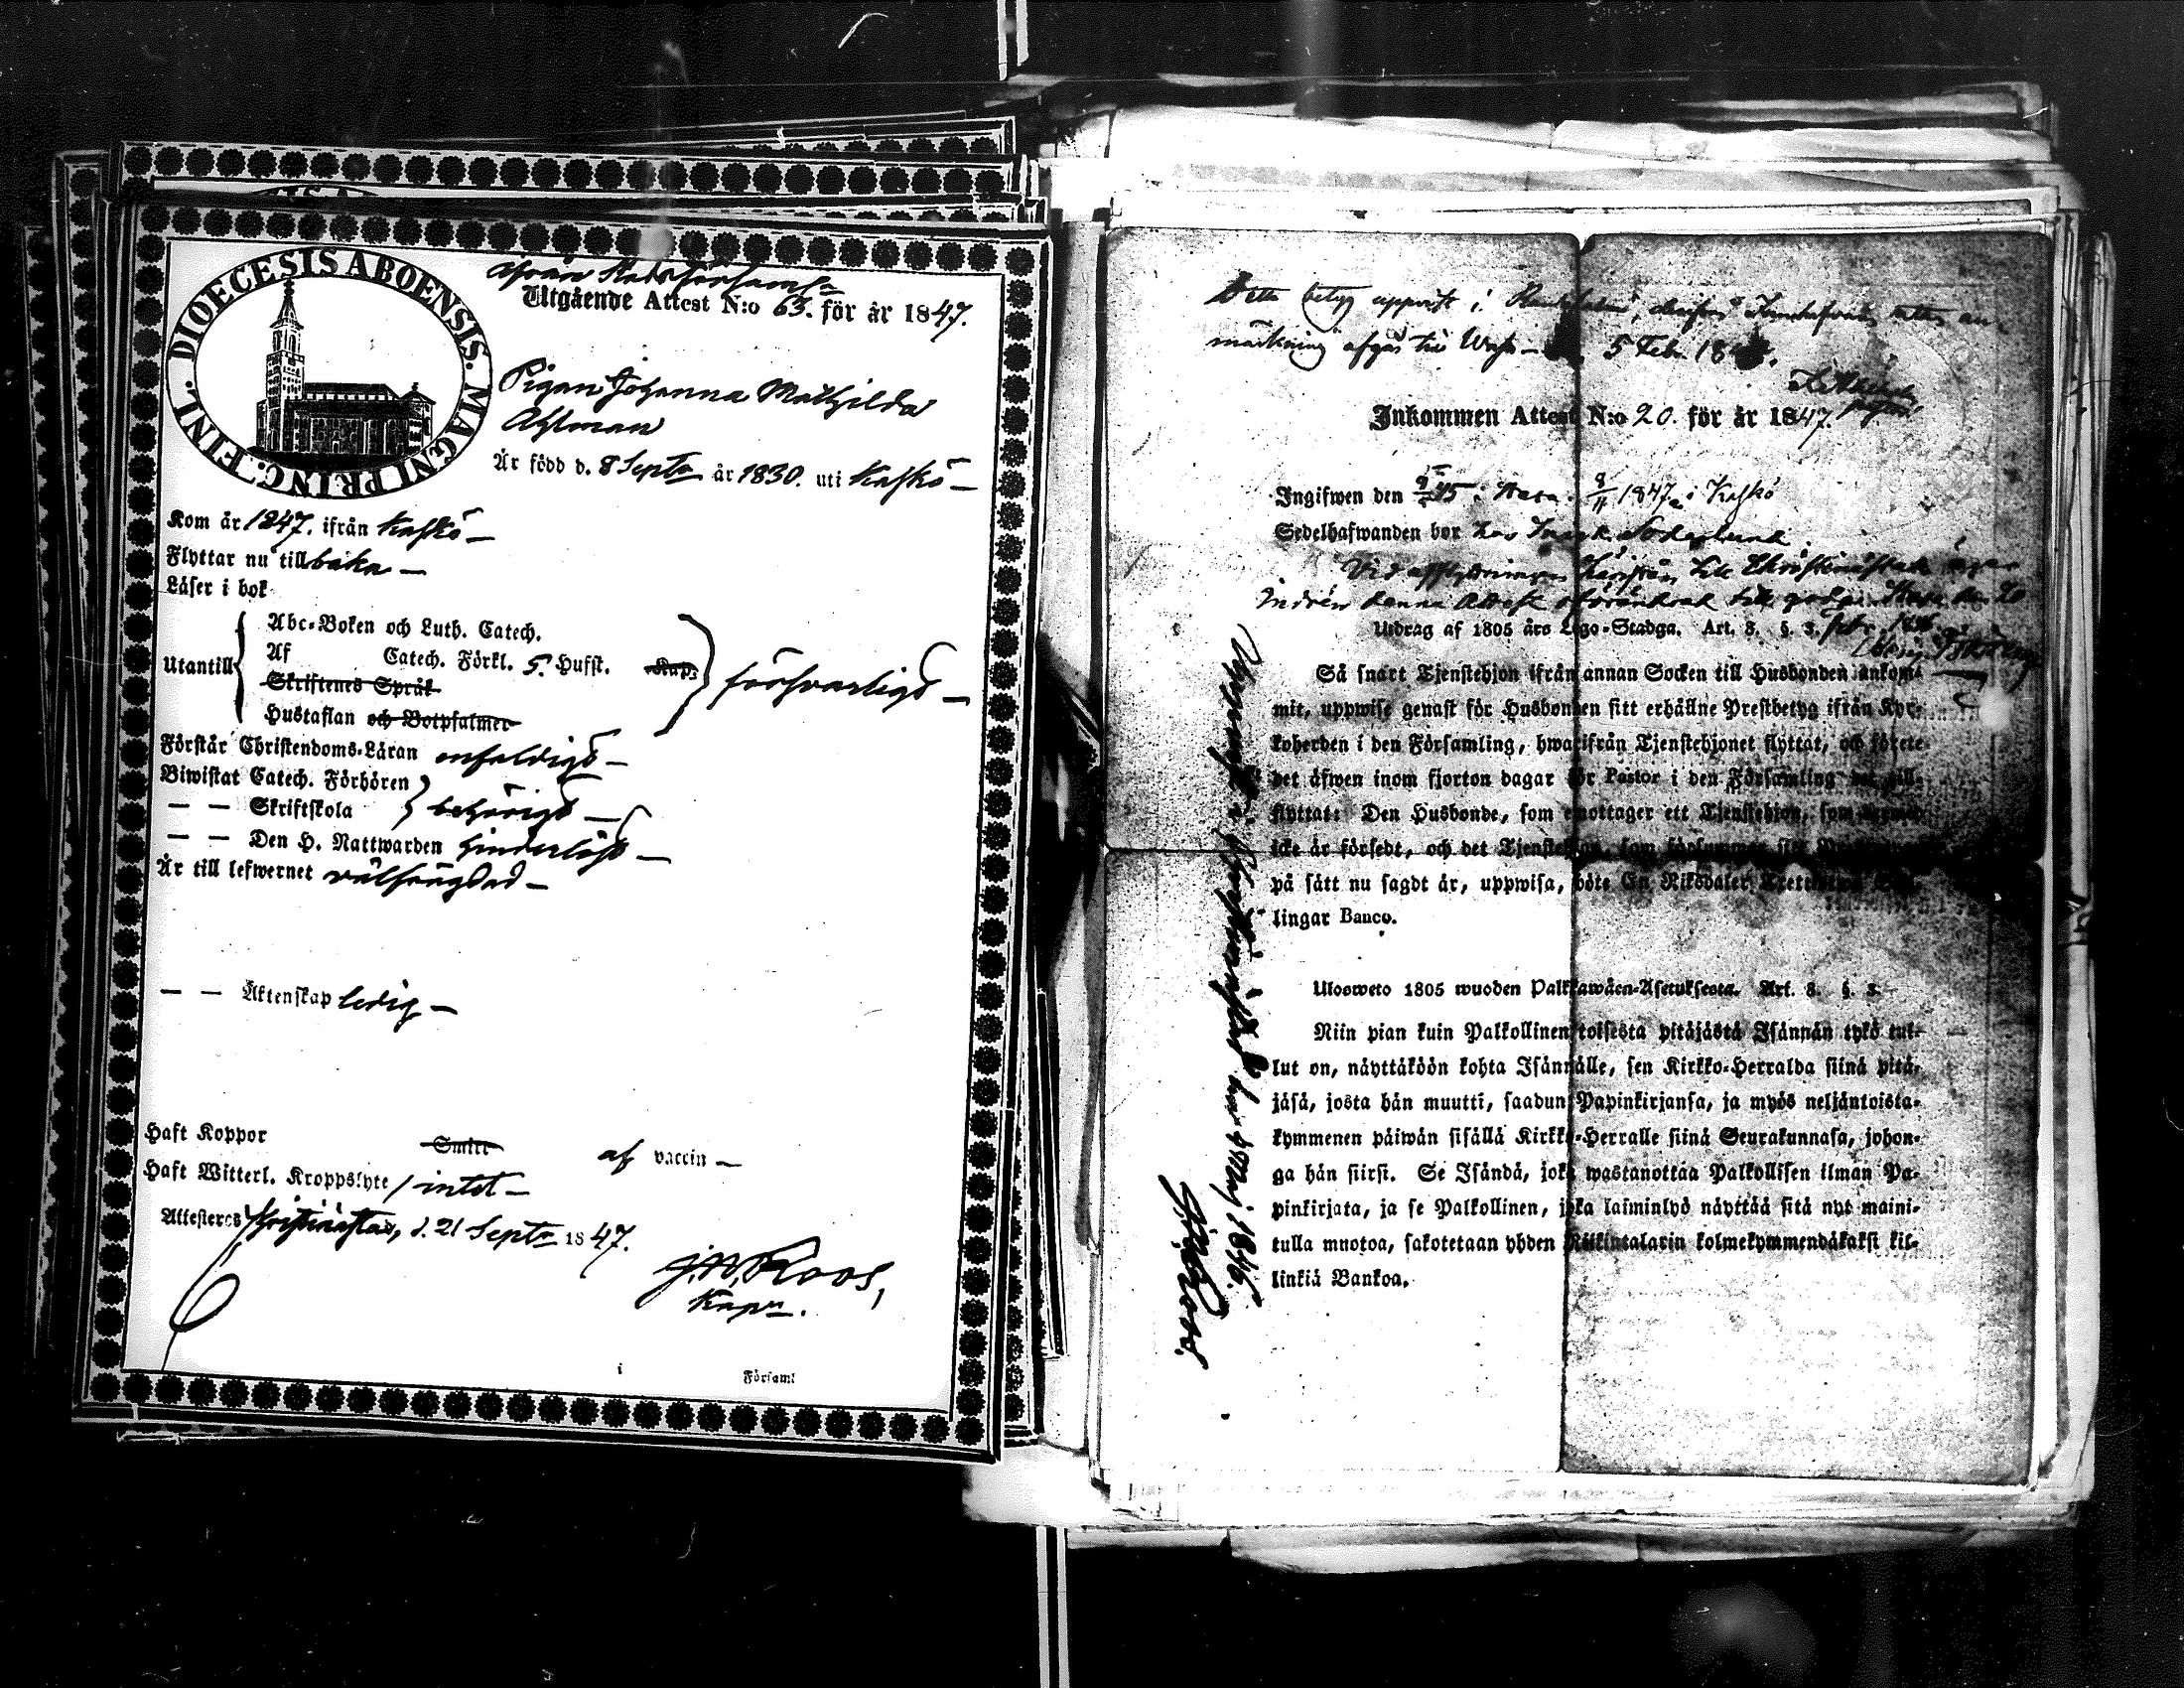 DIOECESIS ABOENSIS. MAGNI PRINC. FINL.
ifrån Stadsförsaml.
Utgående Attest N:o 63. för år 1847.
Pigan Johanna Mathilda
Ahlman
Är född d. 8 Septr år 1830. uti Kaskö
Kom år 1847. ifrån Kaskö
Flyttar nu tillbaka
Läser i bok
Abc-Boken och Luth. Catech.
Af Catech. Förkl. 5. Hufst. Kap:
Utantill försvarligt
Skriftenes Språk
Hustaflan och Botpsalmer
Förstår Christendoms-Läran enfaldigt
Biwistat Catech. Förhören
— — Skriftskola behörigt
— — Den H. Nattwarden hinderlöst
Är till lefwernet välfrägdad
— — Äktenskap ledig
Haft Koppor Smitt af vaccin
Haft Witterl. Kroppslyte intet
Attesteres Kristinestad, d. 21 Septr 1847.
J.W. Roos,
Kapn.
i Församl
Detta betyg uppvist i
märkning afgår till 5 Feb. 18
Inkommen Attest N:o 20. för år 1847.
Ingifwen den 45 i 8/11 1847. i Kaskö
Sedelhafwanden bor hos Söderlund.
Vid afflyttningen härifrån till Christinestad
denna Attest oförändrad till godo.
Utdrag af 1805 års Lego-Stadga. Art. 8. §. 3.
Så snart Tjenstehjon ifrån annan Socken till Husbonden ankom-
mit, uppwise genast för Husbonden sitt erhållne Prestbetyg ifrån Kyr-
koherden i den Församling, hwarifrån Tjenstehjonet flyttat, och förete
det äfwen inom fjorton dagar för Pastor i den Församling det till-
flyttat: Den Husbonde, som emottager ett Tjenstehjon, som
icke är försedt, och det Tjenstehjon, som försummar sitt
på sätt nu sagdt är, uppwisa, böte En Riksdaler Trettiotwå Skil-
lingar Banco.
Ulosweto 1805 wuoden Palkkawäen-Asetuksesta. Art. 8. §. 3.
Niin pian kuin Palkollinen toisesta pitäjästä Isännän tykö tul-
lut on, näyttäköön kohta Isännälle, sen Kirkko-Herralda siinä pitä-
jäsä, josta hän muutti, saadun Papinkirjansa, ja myös neljäntoista-
kymmenen päiwän sisällä Kirkko-Herralle siinä Seurakunnasa, johon-
ga hän siirsi. Se Isändä, joka wastanottaa Palkollisen ilman Pa-
pinkirjata, ja se Palkollinen, joka laiminlyö näyttää sitä nyt maini-
tulla muotoa, sakotetaan yhden Riikintalarin kolmekymmendäkaksi kil-
linkiä Bankoa.
Uppvist i Kristinestad den 4 Maj 1846.
J.W. Roos.